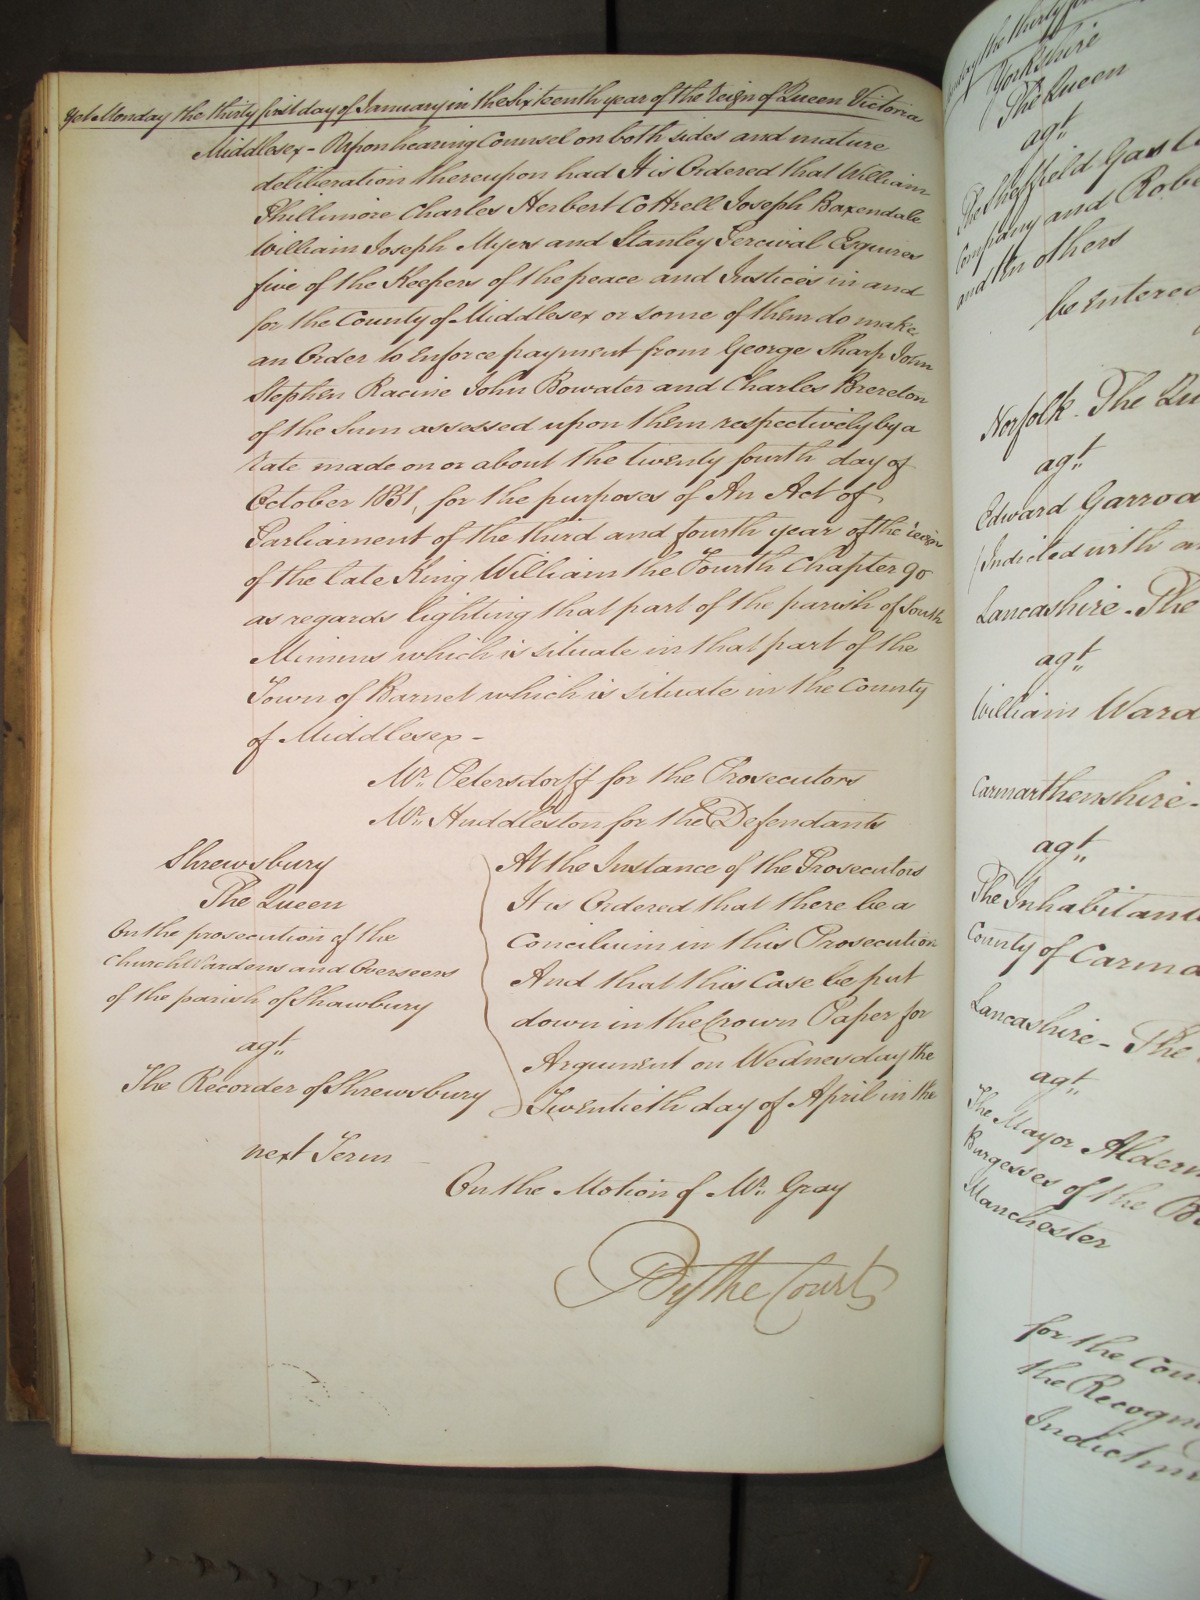 Yet Monday the thirty first day of January in the Sixteenth year of the Reign of Queen Victoria
Middlesex - Upon hearing Counsel on both sides and mature
deliberation thereupon had It is Ordered that William
Phillimore Charles Herbert Cottrell Joseph Baxendale
William Joseph Myers and Stanley Percival Esquires
five of the Keepers of the peace and Justices in and
for the County of Middlesex or some of them do make
an Order to Enforce payment from George Sharp John
Stephen Racine John Bowater and Charles Brereton
of the Sum assessed upon them respectively by a
rate made on or about the twenty fourth day of
October 1851, for the purposes of An Act of
Parliament of the third and fourth year of the reign
of the late King William the Fourth Chapter 90
as regards lighting that part of the parish of South
Mimms which is situate in that part of the
Town of Barnet which is situate in the County
of Middlesex -
Mr. Petersdorff for the Prosecutors
Mr. Huddleston for the Defendants
Shrewsbury
The Queen
On the prosecution of the
Churchwardens and Overseers
of the parish of Shawbury
agt.
The Recorder of Shrewsbury
At the Instance of the Prosecutors
It is Ordered that there be a
Concilium in this Prosecution
And that this Case be put
down in the Crown Paper for
Argument on Wednesday the
Twentieth day of April in the
next Term -
On the Motion of Mr. Gray
By the Court
Yorkshire
The Queen
agt.
The Sheffield Gas
Company and
and ten others
be Entered
Norfolk - The
agt.
Edward
Indicted with
Lancashire - The
agt.
William Ward
Carmarthenshire -
agt.
The Inhabitants
County of
Lancashire - The
agt.
The Mayor
Burgesses of the
Manchester
for the
the